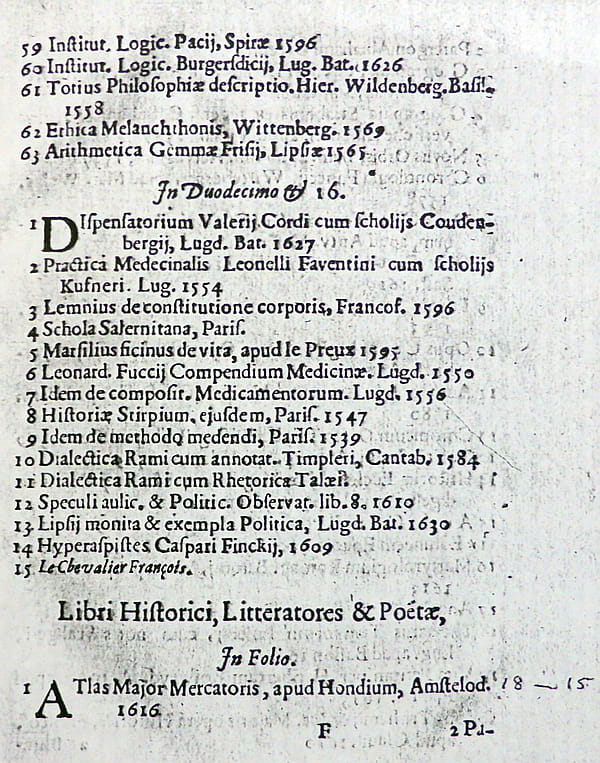 59 Inſtitut. Logic. Pacij, Spiræ 1596
60 Inſtitut. Logic. Burgerſdicij, Lug. Bat. 1626
61 Totius Philoſophiæ deſcriptio. Hier. Wildenberg. Baſil.
1558
62 Ethica Melanchthonis, Wittenberg. 1569
63 Arithmetica Gemmæ Friſij, Lipſiæ 1565
In Duodecimo & 16.
1 DIſpenſatorium Valerij Cordi cum ſcholijs Couden-
bergij, Lugd. Bat. 1627
2 Practica Medecinalis Leonelli Faventini cum ſcholijs
Kufneri. Lug. 1554
3 Lemnius de conſtitutione corporis, Francof. 1596
4 Schola Salernitana, Pariſ.
5 Marſilius ficinus de vita, apud le Preux 1595
6 Leonard. Fuccij Compendium Medicinæ. Lugd. 1550
7 Idem de compoſit. Medicamentorum. Lugd. 1556
8 Hiſtoriæ Stirpium, ejuſdem, Pariſ. 1547
9 Idem de methodo medendi, Pariſ. 1539
10 Dialectica Rami cum annotat. Timpleri, Cantab. 1584
11 Dialectica Rami cum Rhetorica Talæi
12 Speculi aulic. & Politic. Obſervat. lib. 8. 1610
13 Lipſij monita & exempla Politica, Lugd. Bat. 1630
14 Hyperaſpiſtes Caſpari Finckij, 1609
15 Le Chevalier François.
Libri Hiſtorici, Litteratores & Poëtæ,
In Folio.
1 ATlas Major Mercatoris, apud Hondium, Amſtelod. 18 — 15
1616
F 2 Pa-